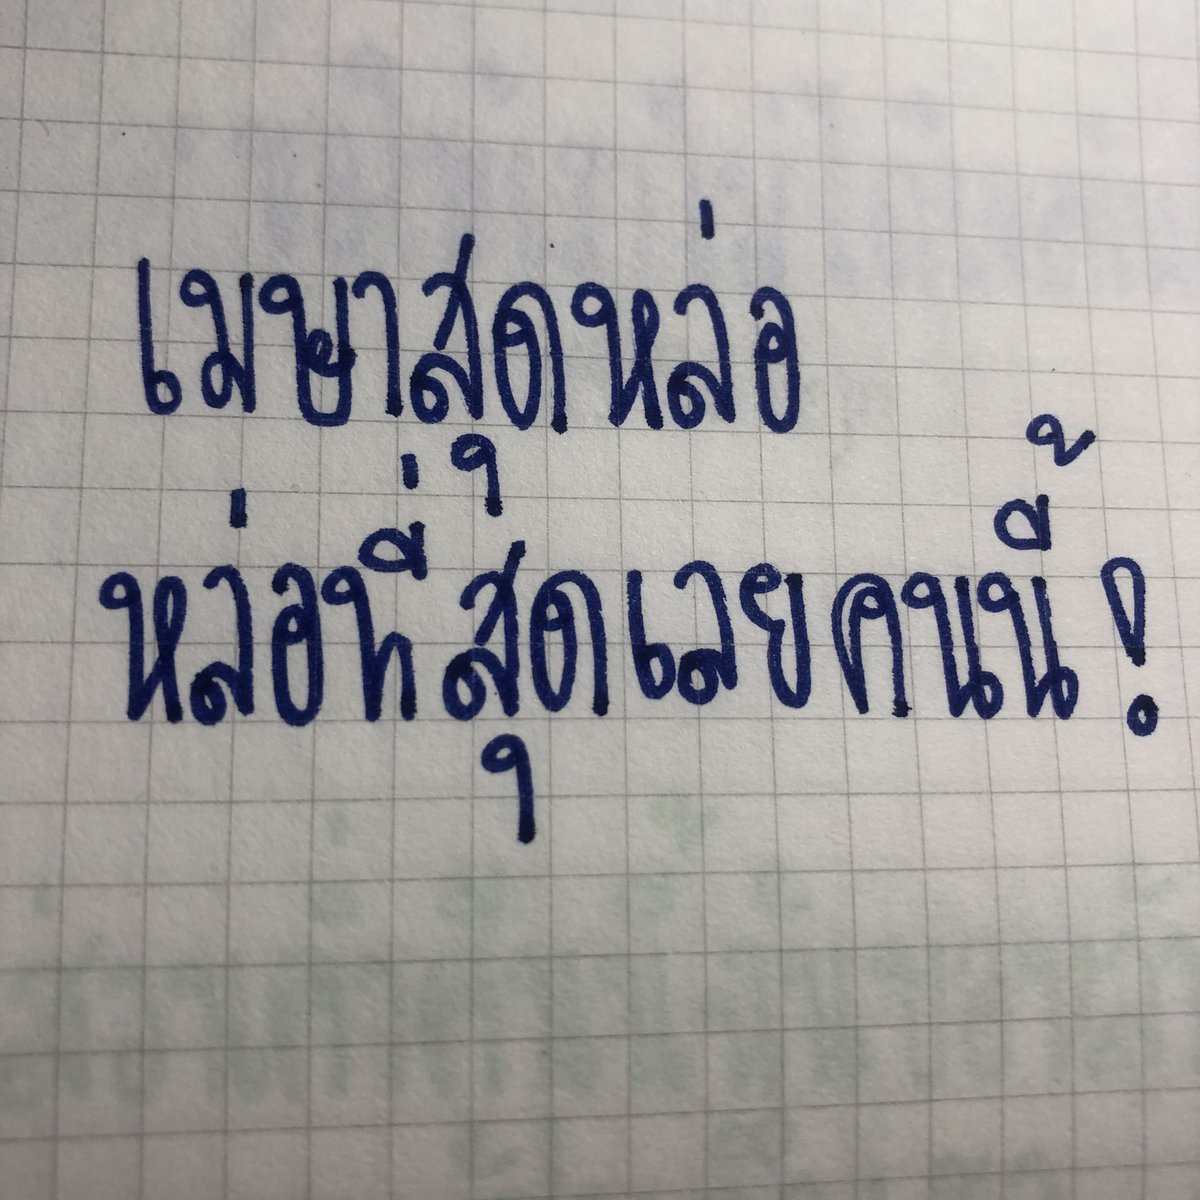 เมษาสุดหล่อ
หล่อที่สุดเลยคนนี้!